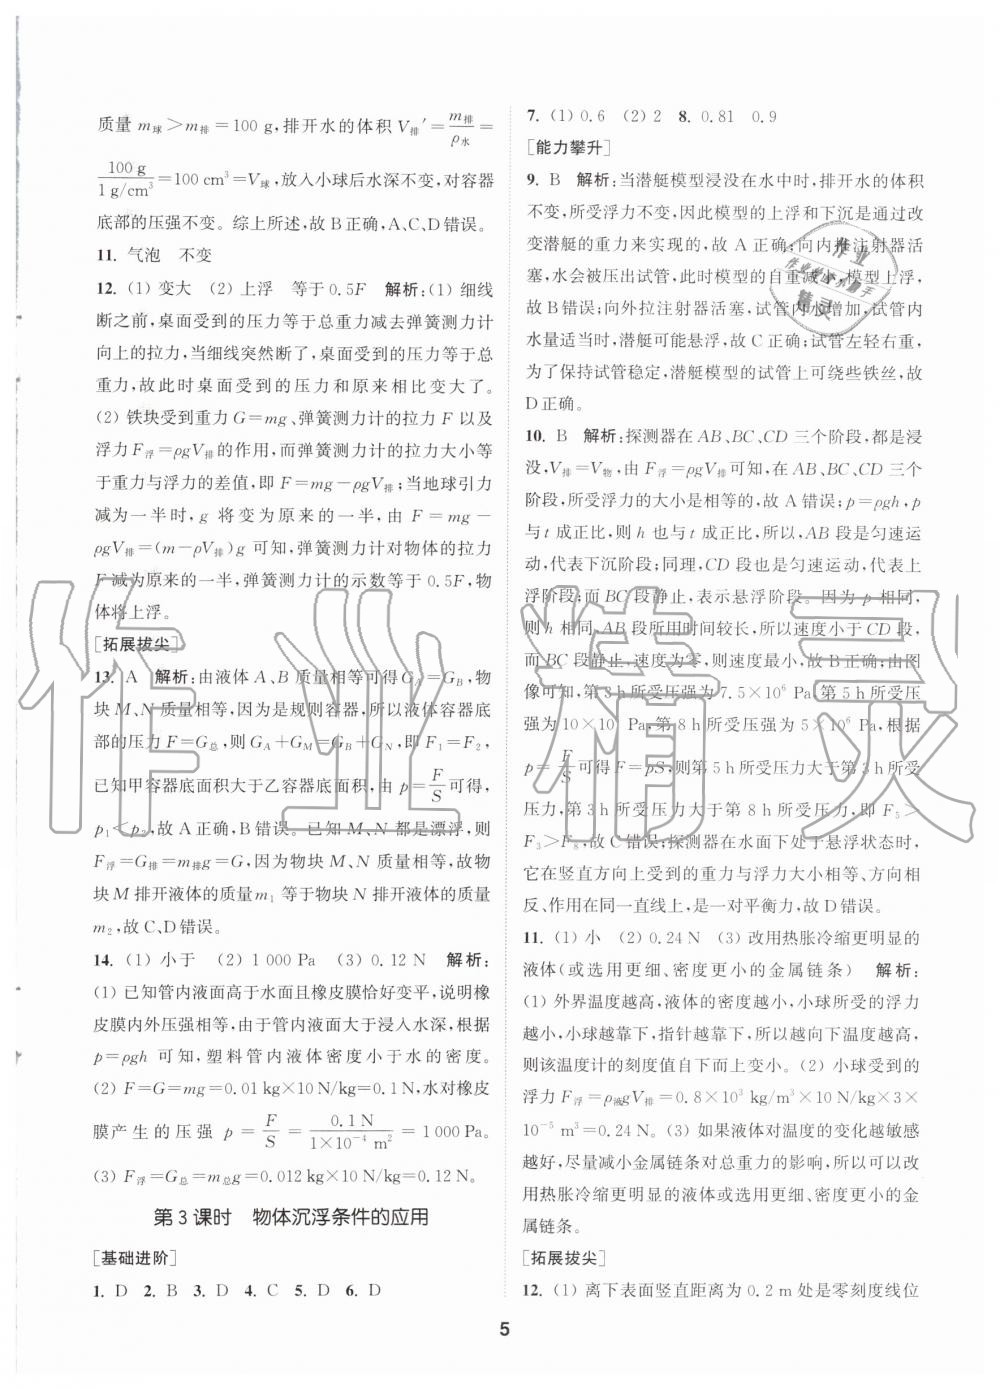 质量 m球＞m排＝100 g，排开水的体积 V排′＝m排/ρ水＝
100 g/1 g/cm³＝100 cm³＝V球，放入小球后水深不变，对容器
底部的压强不变。综上所述，故 B 正确，A、C、D 错误。
11. 气泡　不变
12. (1) 变大　(2) 上浮　等于 0.5F　解析：(1) 细线
断之前，桌面受到的压力等于总重力减去弹簧测力计
向上的拉力，当细线突然断了，桌面受到的压力等于总
重力，故此时桌面受到的压力和原来相比变大了。
(2) 铁块受到重力 G＝mg、弹簧测力计的拉力 F 以及
浮力 F浮＝ρgV排的作用，而弹簧测力计的拉力大小等
于重力与浮力的差值，即 F＝mg－ρgV排；当地球引力
减为一半时，g 将变为原来的一半，由 F＝mg－
ρgV排＝(m－ρV排)g 可知，弹簧测力计对物体的拉力
F 减为原来的一半，弹簧测力计的示数等于 0.5F，物
体将上浮。
［拓展拔尖］
13. A　解析：由液体 A、B 质量相等可得 GA＝GB，物
块 M、N 质量相等，因为是规则容器，所以液体容器底
部的压力 F＝G总，则 GA＋GM＝GB＋GN，即 F₁＝F₂，
已知甲容器底面积大于乙容器底面积，由 p＝F/S可得，
p₁＜p₂，故 A 正确，B 错误。已知 M、N 都是漂浮，则
F浮＝G排＝m排g＝G，因为物块 M、N 质量相等，故物
块 M 排开液体的质量 m₁ 等于物块 N 排开液体的质量
m₂，故 C、D 错误。
14. (1) 小于　(2) 1 000 Pa　(3) 0.12 N　解析：
(1) 已知管内液面高于水面且橡皮膜恰好变平，说明橡
皮膜内外压强相等，由于管内液面大于浸入水深，根据
p＝ρgh 可知，塑料管内液体密度小于水的密度。
(2) F＝G＝mg＝0.01 kg×10 N/kg＝0.1 N，水对橡皮
膜产生的压强 p＝F/S＝0.1 N/1×10⁻⁴ m²＝1 000 Pa。
(3) F浮＝G总＝m总g＝0.012 kg×10 N/kg＝0.12 N。
第 3 课时　物体沉浮条件的应用
［基础进阶］
1. D　2. B　3. D　4. C　5. D　6. D
7. (1) 0.6　(2) 2　8. 0.81　0.9
［能力攀升］
9. B　解析：当潜艇模型浸没在水中时，排开水的体积
不变，所受浮力不变，因此模型的上浮和下沉是通过改
变潜艇的重力来实现的，故 A 正确；向内推注射器活
塞，水会被压出试管，此时模型的自重减小，模型上浮，
故 B 错误；向外拉注射器活塞，试管内水增加，试管内
水量适当时，潜艇可能悬浮，故 C 正确；试管左轻右重，
为了保持试管稳定，潜艇模型的试管上可绕些铁丝，故
D 正确。
10. B　解析：探测器在 AB、BC、CD 三个阶段，都是浸
没，V排＝V物，由 F浮＝ρgV排可知，在 AB、BC、CD 三个
阶段，所受浮力的大小是相等的，故 A 错误；p＝ρgh，p
与 t 成正比，则 h 也与 t 成正比，所以，AB 段是匀速运
动，代表下沉阶段；同理，CD 段也是匀速运动，代表上
浮阶段；而 BC 段静止，表示悬浮阶段。因为 p 相同，
则 h 相同，AB 段所用时间较长，所以速度小于 CD 段，
而 BC 段静止，速度为零，则速度最小，故 B 正确；由图
像可知，第 3 h 所受压强为 7.5×10⁶ Pa，第 5 h 所受压
强为 10×10⁶ Pa，第 8 h 所受压强为 5×10⁶ Pa，根据
p＝F/S可得 F＝pS，则第 5 h 所受压力大于第 3 h 所受
压力，第 3 h 所受压力大于第 8 h 所受压力，即 F₅＞
F₃＞F₈，故 C 错误；探测器在水面下处于悬浮状态时，
它在竖直方向上受到的重力与浮力大小相等、方向相
反、作用在同一直线上，是一对平衡力，故 D 错误。
11. (1) 小　(2) 0.24 N　(3) 改用热胀冷缩更明显的
液体(或选用更细、密度更小的金属链条)　解析：
(1) 外界温度越高，液体的密度越小，小球所受的浮力
越小，小球越靠下，指针越靠下，所以越向下温度越高，
则该温度计的刻度值自下而上变小。(2) 小球受到的
浮力 F浮＝ρ液gV排＝0.8×10³ kg/m³×10 N/kg×3×
10⁻⁵ m³＝0.24 N。(3) 如果液体对温度的变化越敏感
越好，尽量减小金属链条对总重力的影响，所以可以改
用热胀冷缩更明显的液体或选用更细、密度更小的金
属链条。
［拓展拔尖］
12. (1) 离下表面竖直距离为 0.2 m 处是零刻度线位
5
作业精灵
作业
作业的好帮手
精灵